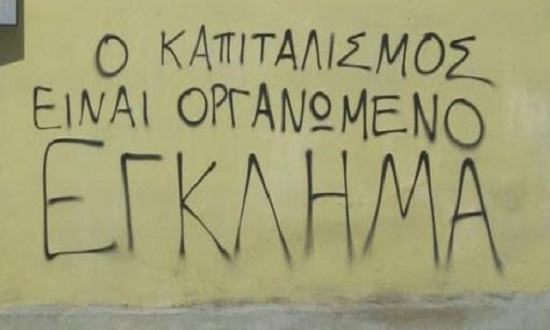 Ο ΚΑΠΙΤΑΛΙΣΜΟΣ
ΕΙΝΑΙ ΟΡΓΑΝΩΜΕΝΟ
ΕΓΚΛΗΜΑ